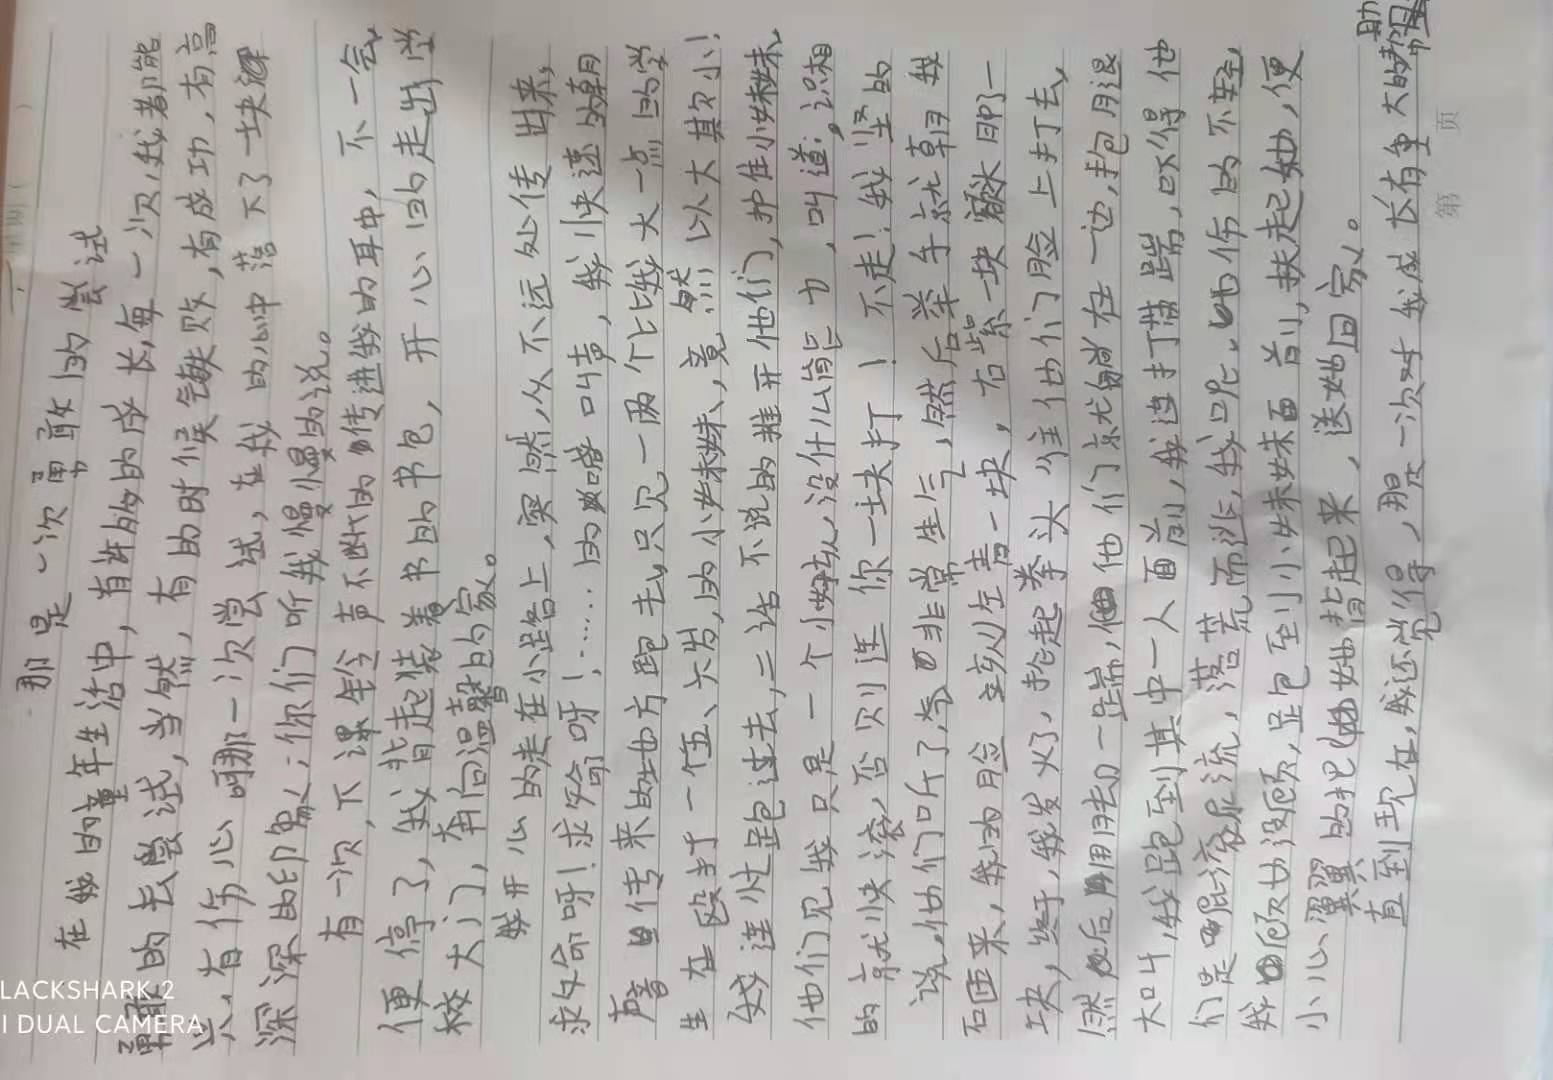 那是一次勇敢的尝试
在我的童年生活中，有许多的成长，每一次，我都能
勇敢的去尝试，当然，有的时候失败，有成功，有高
兴，有伤心，啊那一次尝试，在我的心中落下了一块深
深深的印象；你们听我慢慢的说。
有一次，下课铃声不断的传进我的耳中，不一会，
便停了，我背起装着书的书包，开心的走出学
校大门，奔向温馨的家。
我开心的走在小路上，突然，从不远处传出来，
求求命呀！求给命呀！……的喊叫声，我快速的朝
声音传来的地方跑去，只见一两个比我大一点的学
生在殴打一个五、六岁的小妹妹，竟然，以大其欠小！
我连忙跑过去，二话不说的推开他们，护住小妹妹，
他们见我只是一个小女孩，没什么能力，叫道，识相
的就快滚，否则连你一块打！不走！我坚的
说，他们听了，非常生气，然后举手就朝我
石匝来，我的脸立刻左青一块，右紫一块额头即了一
块，终于，我发火了，抡起拳头当往他们脸上打去，
然后用去一踹，他们就躺在一边，抱用退
大叫，我跑到其中一人面前，我连打带踹，吹得他
们是屁滚尿流，落荒而逃，我呢，也伤的不轻，
我顾也没顾，足包到小妹妹面前，扶起她，便
小心翼翼的把她背起来，送她回家。
直到现在，我还觉得，那是一次对我成长有重大的帮助
第 页
LACKSHARK 2
I DUAL CAMERA